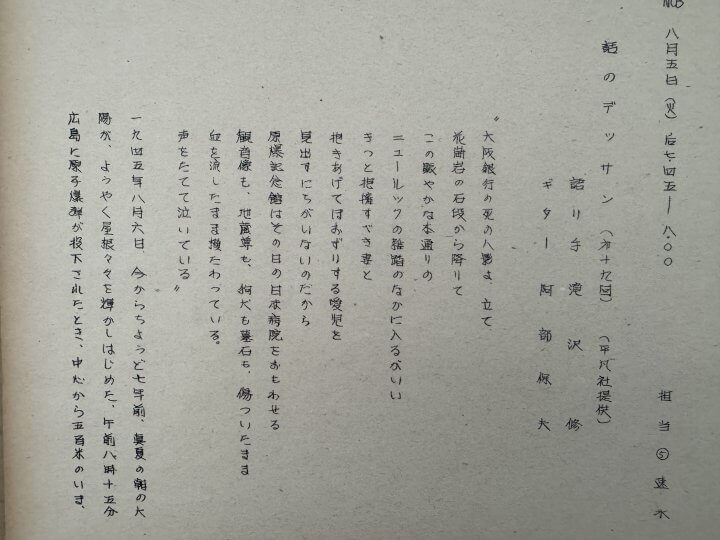 NCB 八月五日(火)后七・四五―八・〇〇 担当⑤速水
話のデッサン(第十九回)(平凡社提供)
語り手 滝沢修
ギター 阿部保夫
〝大阪銀行の死の人影よ、立て
花崗岩の石段から降りて
この賑やかな本通りの
ニュールックの雑踏のなかに入るがいい
きっと抱擁すべき妻と
抱きあげてほおずりする愛児を
見出すにちがいないのだから
原爆記念館はその日の日赤病院をおもわせる
観音像も、地蔵尊も、狛犬も墓石も、傷ついたまま
血を流したまま横たわっている。
声をたてて泣いている〟
一九四五年八月六日、今からちょうど七年前、真夏の朝の太
陽が、ようやく屋根々々を輝かしはじめた、午前八時十五分
広島に原子爆弾が投下されたとき、中心から五百米のいま、